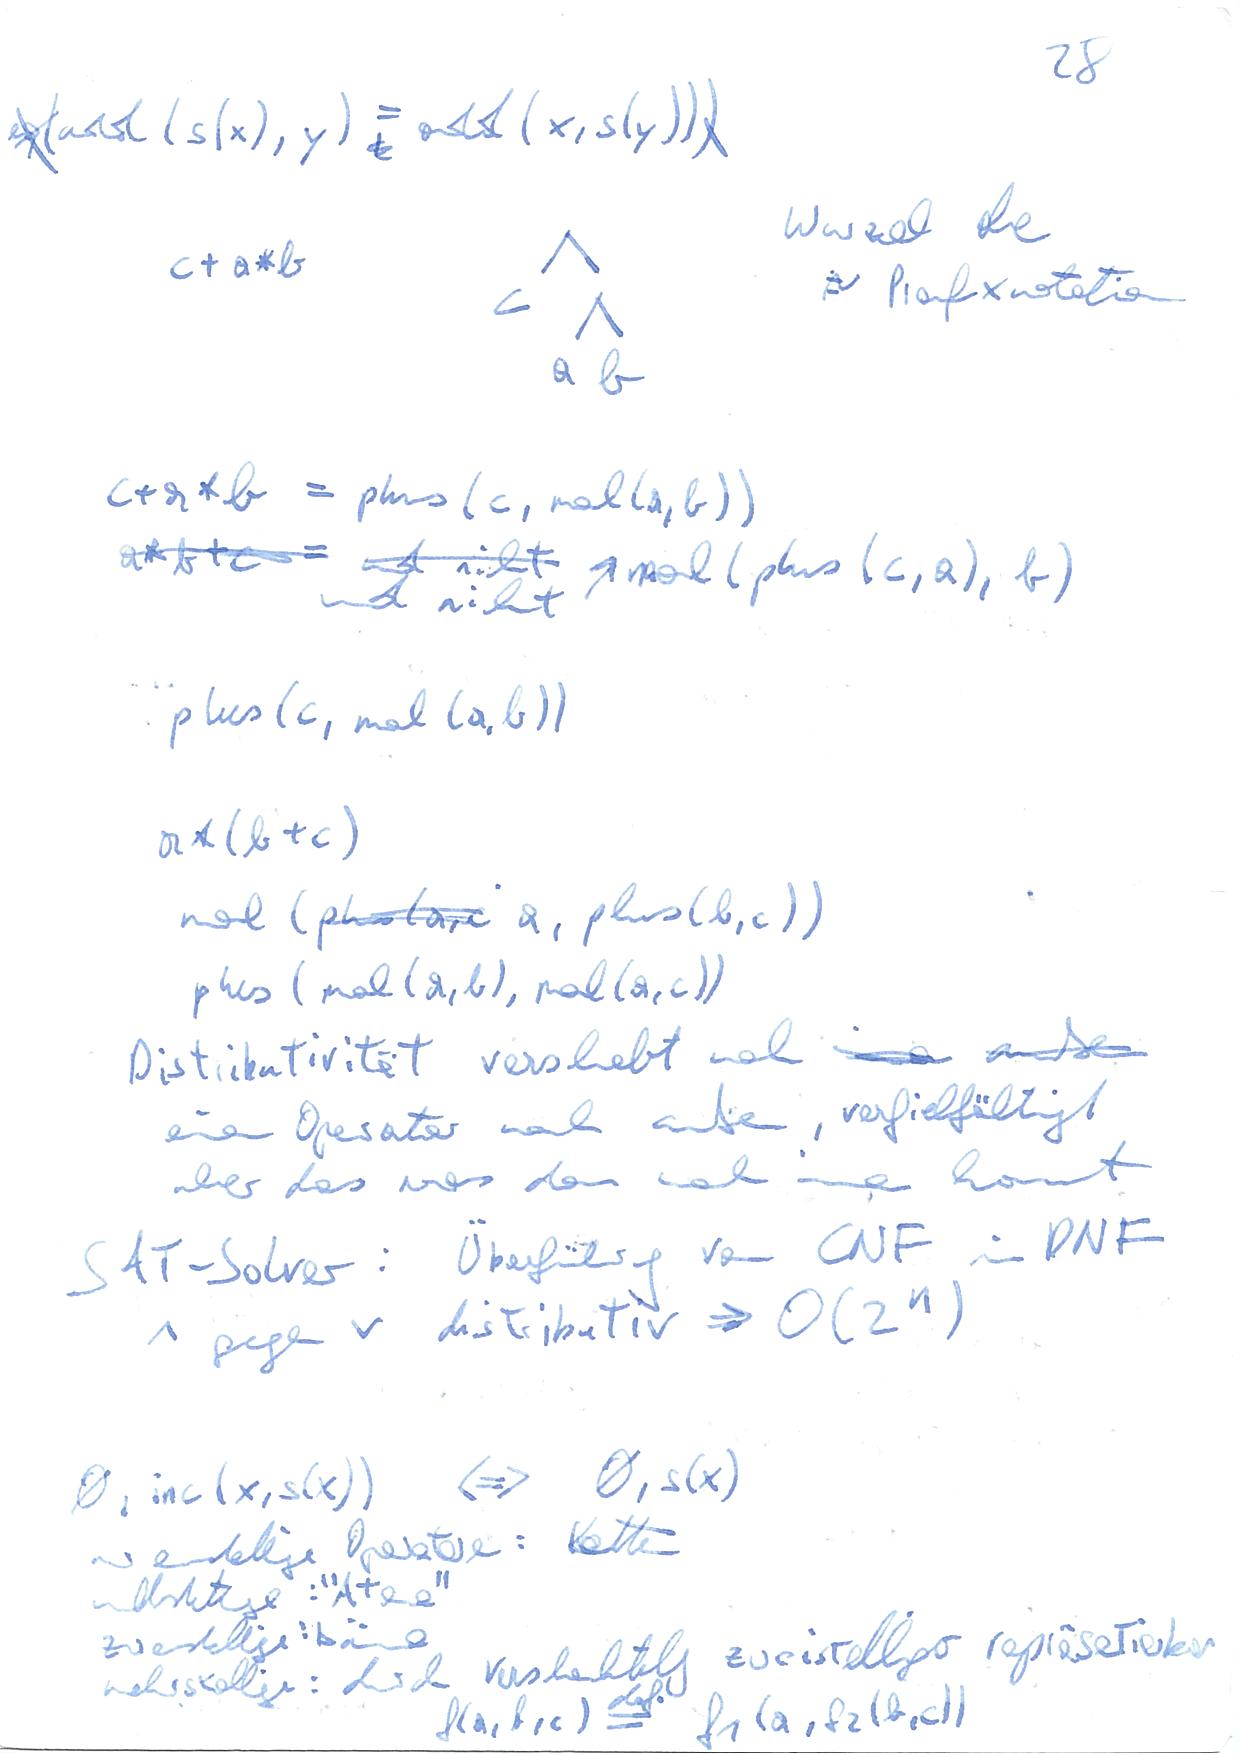 28
(add(s(x), y) = add(x, s(y)))
c+a*b
Wurzel
≈ Präfixnotation
c
a b
c+a*b = plus(c, mal(a,b))
a*b+c = und nicht mal(plus(c,a), b)
und nicht
plus(c, mal(a,b))
a*(b+c)
mal (plus(a,c a, plus(b,c))
plus(mal(a,b), mal(a,c))
Distributivität verschiebt nach innen außen
einen Operator nach außen, vervielfältigt
aber das was dann nach innen kommt
SAT-Solver: Überführung von CNF in DNF
∧ gegen ∨ distributiv ⇒ O(2^n)
0, inc(x,s(x)) <=> 0, s(x)
einstellige Operatoren: Kette
nullstellige: "Atome"
zweistellige: Bäume
mehrstellige: durch Verschachtelung zweistelliger repräsentierbar
f(a,b,c) =def. f1(a, f2(b,c))